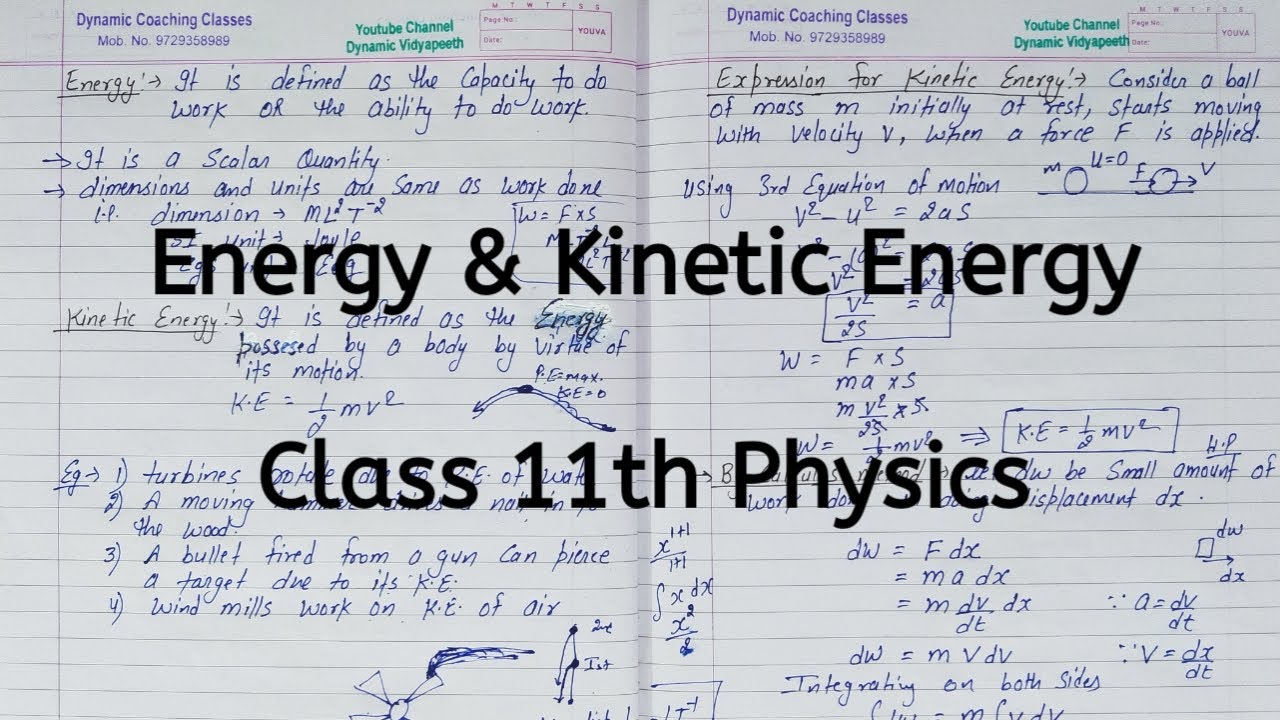 Dynamic Coaching Classes
Mob. No. 9729358989
Youtube Channel
Dynamic Vidyapeeth
M T W T F S S
Page No.:
Date:
YOUVA
Energy:→ It is defined as the Capacity to do
work OR the ability to do work.
→ It is a Scalar Quantity.
→ dimensions and units are same as work done
i.e. dimension → ML²T⁻²
W = F×S
Kinetic Energy:→ It is defined as the Energy
possesed by a body by virtue of
its motion.
K.E = 1/2 mv²
P.E=max.
K.E=0
Eg→ 1) turbines
2) A moving
the wood.
3) A bullet fired from a gun can pierce
a target due to its K.E.
4) wind mills work on K.E. of air
2nd
Ist
Energy & Kinetic Energy
Class 11th Physics
Dynamic Coaching Classes
Mob. No. 9729358989
Youtube Channel
Dynamic Vidyapeeth
M T W T F S S
Page No.:
Date:
YOUVA
Expression for Kinetic Energy:→ Consider a ball
of mass m initially at rest, starts moving
with velocity V, when a force F is applied.
m u=0 F V
Using 3rd Equation of motion
V² - u² = 2as
V²/2S = a
W = F × S
ma × S
m V²/2S × S
W = 1/2 mv² ⇒ K.E = 1/2 mv²
H.P
be Small amount of
displacement dx.
x¹⁺¹/1+1
∫x dx
x²/2
dw = F dx
dw
dx
= m a dx
= m dv/dt dx ∵ a = dv/dt
dw = m V dV ∵ V = dx/dt
Integrating on both sides
∫dw = m ∫V dV